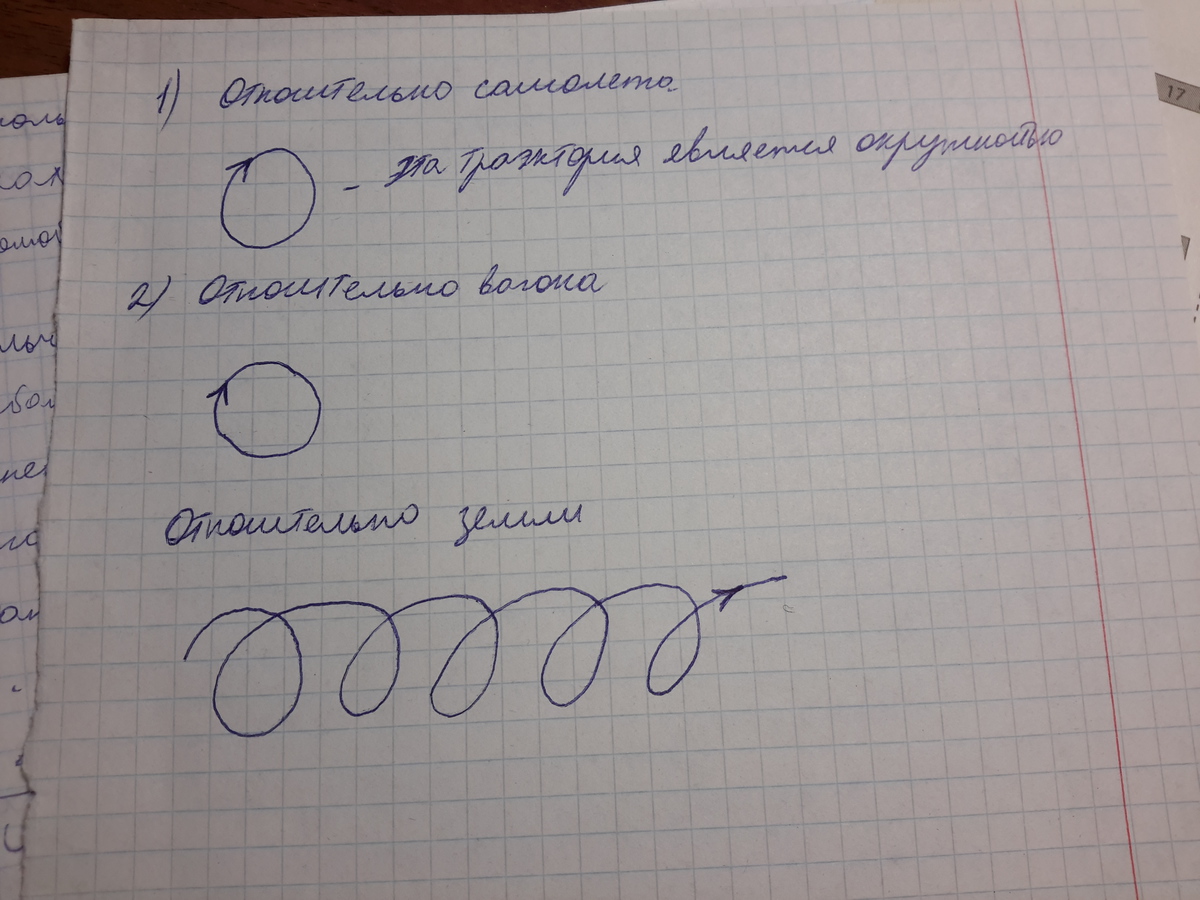 1) Относительно самолета
- эта траэктория является окружностью
2) Относительно вагона
Относительно земли
17